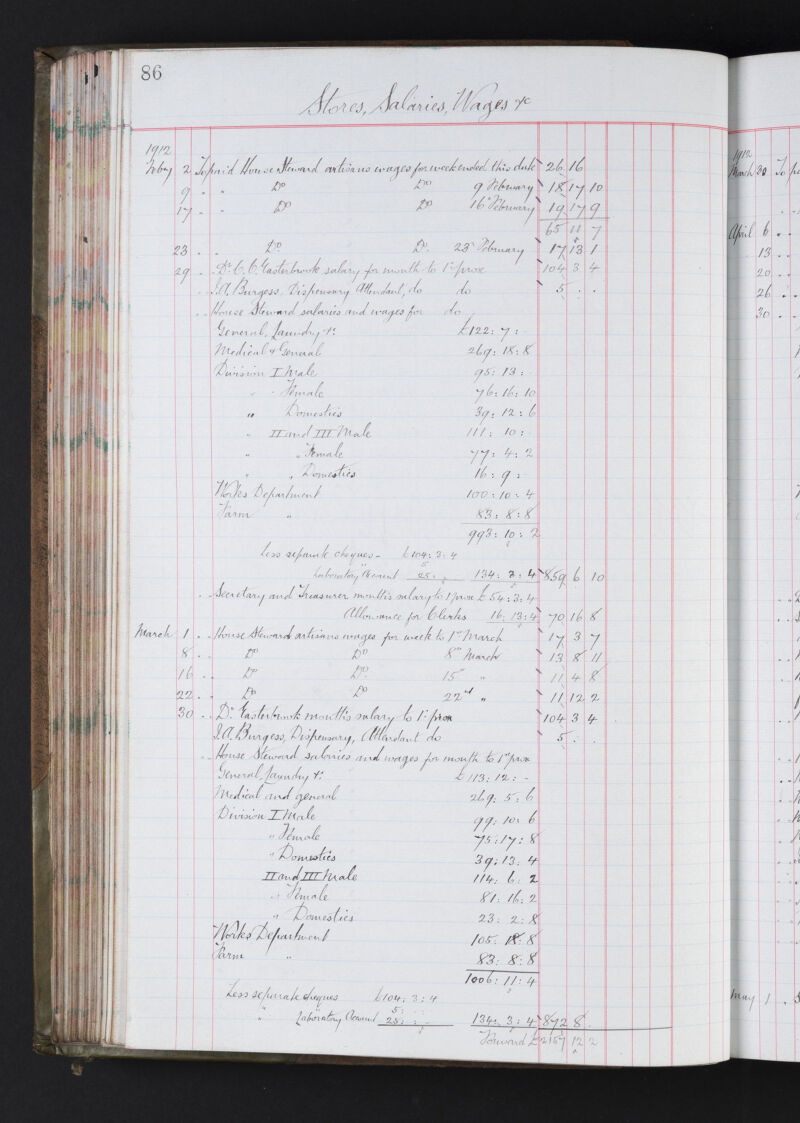 86
Stores, Salaries, Wages &c
1912
Feby 2 To paid House Steward artisans wages for week ended this date 26 16
9 . . " Do Do 9 February 18 17 10
17 . . Do Do 16th February 19 17 9
65 11 7
23 . . Do Do 23rd February 17 13 1
29 . . Dr. C. C. Easterbrook salary for month to 1st prox 104 3 4
. . J.A. Burgess, Dispensary Attendant, do do 5 . .
. . House Steward salaries and wages for do
General, Laundry &c £122: 7: -
Medical & General 269: 18: 8
Division I Male 95: 13: -
" " Female 76: 16: 10
" Domestics 39: 12: 6
" II and III Male 111: 10: -
" " Female 77: 4: 2
" " Domestics 16: 9: -
Works Department 100: 10: 4
Farm " 83: 8: 8
993: 10: 2
Less separate cheques - £104: 3: 4
5
Laboratory Account 25: - 134: 3: 4 859 6 10
. . Secretary and Treasurer month's salary to 1 prox £54: 3: 4
Allowance for Clerks 16: 13: 4 70 16 8
March 1 . . House Steward artisans wages for week to 1st March 17 3 7
8 . . Do Do 8th March 13 8 11
16 . . Do Do 15 " 11 4 8
22 . . Do Do 22nd " 11 12 2
30 . . Dr. Easterbrook month's salary to 1st prox 104 3 4
J.A. Burgess, Dispensary, Attendant do 5 : .
. . House Steward salaries and wages for month to 1st prox
General, Laundry &c £113: 12: -
Medical and general 269: 5: 6
Division I Male 99: 10: 6
" Female 75: 17: 8
" Domestics 39: 13: 4
II and III Male 114: 6: 2
" Female 81: 16: 2
" Domestics 23: 2: 8
Works Department 105: 18: 8
Farm " 83: 8: 8
1006: 11: 4
Less separate cheques £104: 3: 4
5:
" Laboratory Account 25: 134: 3: 4 872 8 .
Forward £2157 12 2
1912
March 30 To
April 6 . .
13 . .
20 . .
26 . .
30 . .
May 1 .